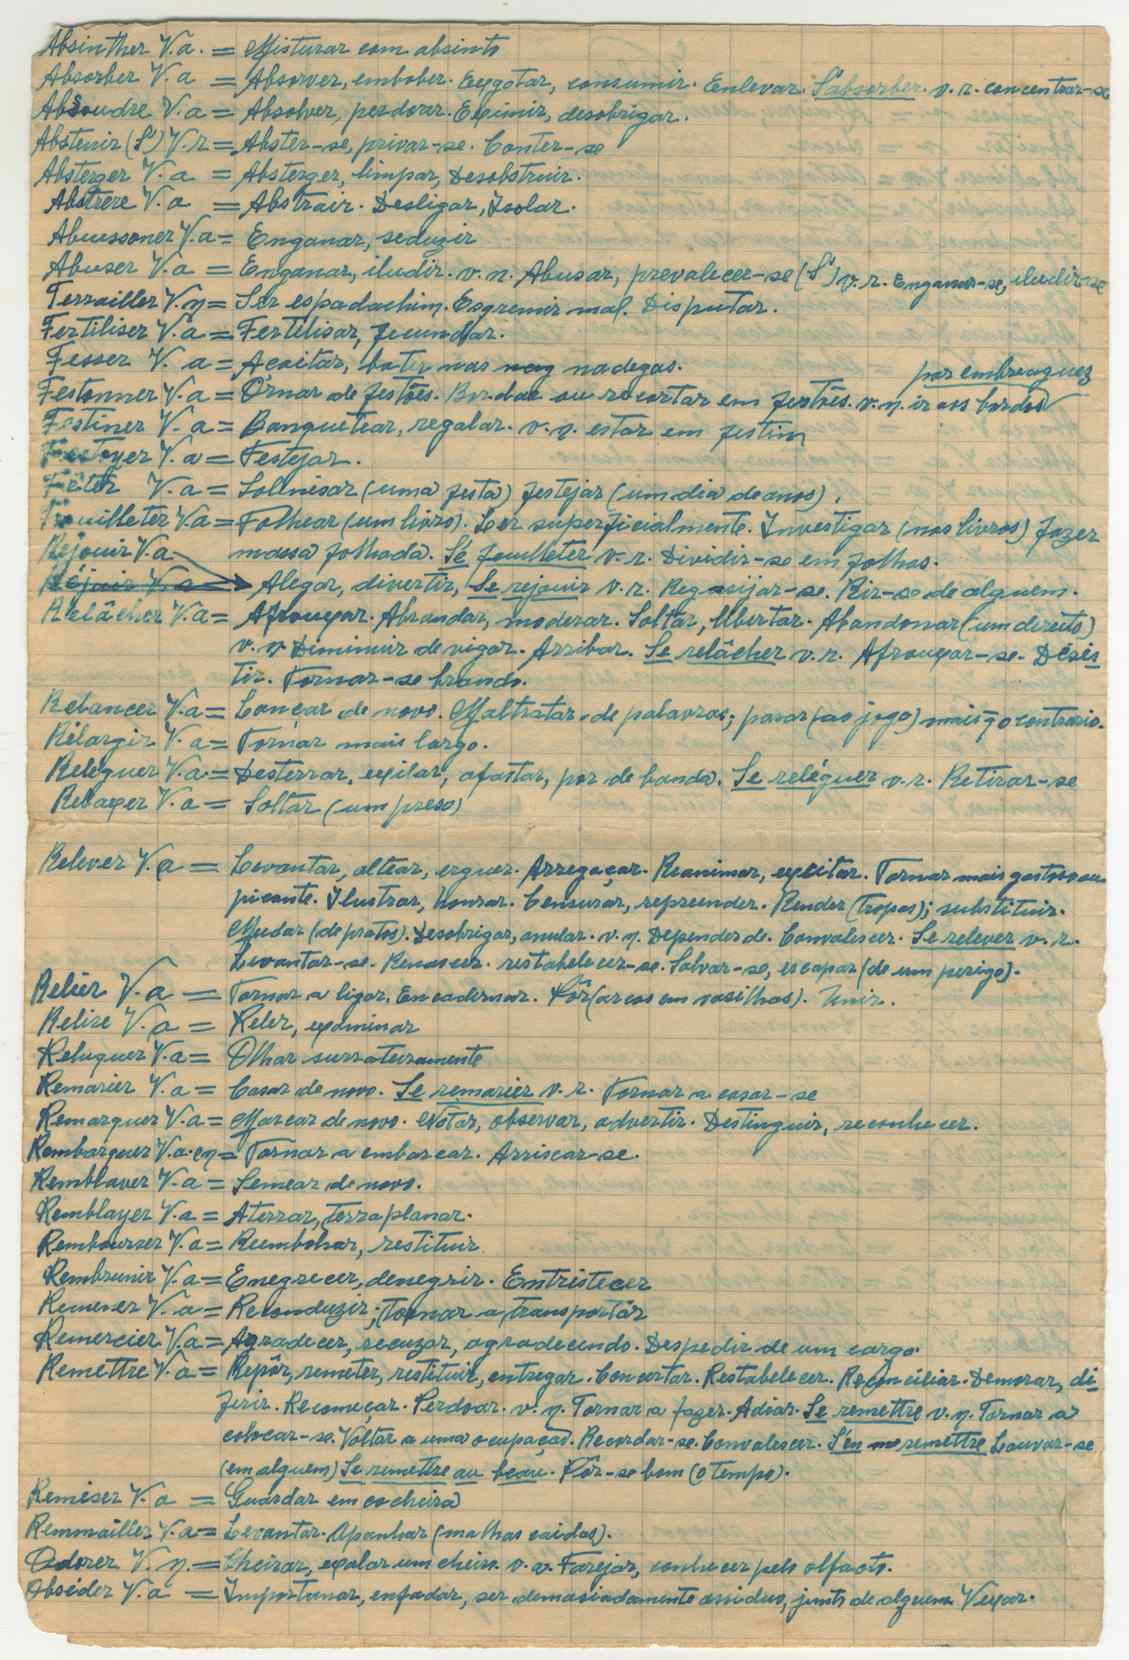 Absinther V.a. = Misturar com absinto
Absorber V.a = Absorver, embober. Exgotar, consumir. Enlevar. S'absorber v.r. concentrar-se
Absoudre V.a = Absolver, perdoar. Eximir, desobrigar.
Abstenir (S') V.r = Abster-se, privar-se. Conter-se
Absterger V.a = Absterger, limpar, Desobstruir.
Abstrere V.a = Abstrair. Desligar, Isolar.
Abuessoner V.a = Enganar, seduzir
Abuser V.a = Enganar, iludir. v.n. Abusar, prevalecer-se (S') v.r. Enganar-se, iludir-se
Ferrailler V.n = Ser espadachim. Esgremir mal. Disputar.
Fertiliser V.a = Fertilisar, fecundar.
Fesser V.a = Açoitar, bater nas nadegas.
por embreaguez
Festonner V.a = Ornar de festões. Bordar ou recortar em festões. v.n. ir aos bordos
Festiner V.a = Banquetear, regalar. v.n. estar em festim
Festoyer V.a = Festejar.
Fêter V.a = Sollnisar (uma festa) festejar (um dia de anos).
Feuilleter V.a = Folhear (um livro). Ler superficialmente. Investigar (nos livros) fazer
Rejouir V.a massa folhada. Se feuilleter v.r. Dividir-se em folhas.
Réjouir V.a Alegar, divertir, Se rejouir v.r. Regosijar-se. Rir-se de alguem.
Relâcher V.a = Afrouxar. Abrandar, moderar. Soltar, libertar. Abandonar (um direito)
v.n Diminuir de vigor. Arribar. Se relâcher v.r. Afrouxar-se. Desis
tir. Tornar-se brando.
Relancer V.a = Lançar de novo. Maltratar de palavras; parar (ao jogo) mais q̄ o contrario.
Rélargir V.a = Tornar mais largo.
Releguer V.a = Desterrar, exilar, afastar, por de banda. Se reléguer v.r. Retirar-se
Relaxer V.a = Soltar (um preso)
Relever V.a = Levantar, altear, erguer. Arregaçar. Reanimar, excitar. Tornar mais gostoso ou
picante. Ilustrar, honrar. Censurar, repreender. Render (tropas); substituir.
Mudar (de pratos). Desobrigar, anular. v.n. Depender de. Convalescer. Se relever v.r.
Levantar-se. Renascer. restabelecer-se. Salvar-se, escapar (de um perigo).
Relier V.a = Tornar a ligar. Encadernar. Pôr (arcos em vasilhas). Unir.
Relire V.a = Reler, examinar
Reluquer V.a = Olhar surrateiramente
Remarier V.a = Casar de novo. Se remarier v.r. Tornar a casar-se
Remarquer V.a = Marcar de novo. Notar, observar, advertir. Destinguir, reconhecer.
Rembarquer V.a. e n = Tornar a embarcar. Arriscar-se.
Remblaver V.a = Semear de novo.
Remblayer V.a = Aterrar, terraplanar.
Rembourser V.a = Reembolsar, restituir.
Rembrunir V.a = Enegrecer, denegrir. Entristecer
Remener V.a = Reconduzir; Tornar a transportár
Remercier V.a = Agradecer, recuzar, agradecendo. Despedir de um cargo.
Remettre V.a = Repôr, remeter, restituir, entregar. Concertar. Restabelecer. Reconciliar. Demorar, di-
ferir. Recomeçar. Perdoar. v.n. Tornar a fazer. Adiar. Se remettre v.n. Tornar a
colocar-se. Voltar a uma ocupação. Recordar-se. Convalescer. S'en remettre Louvar-se
(em alguem) Se remettre au beau. Pôr-se bom (o tempo).
Remiser V.a = Guardar em cocheira
Remmailler V.a = Levantar. Apanhar (malhas caidas).
Odorer V.n. = Cheirar, exalar um cheiro. v.a. Farejar, conhecer pelo olfacto.
Obséder V.a = Importunar, enfadar, ser demasiadamente assiduo, junto de alguem. Vexar.